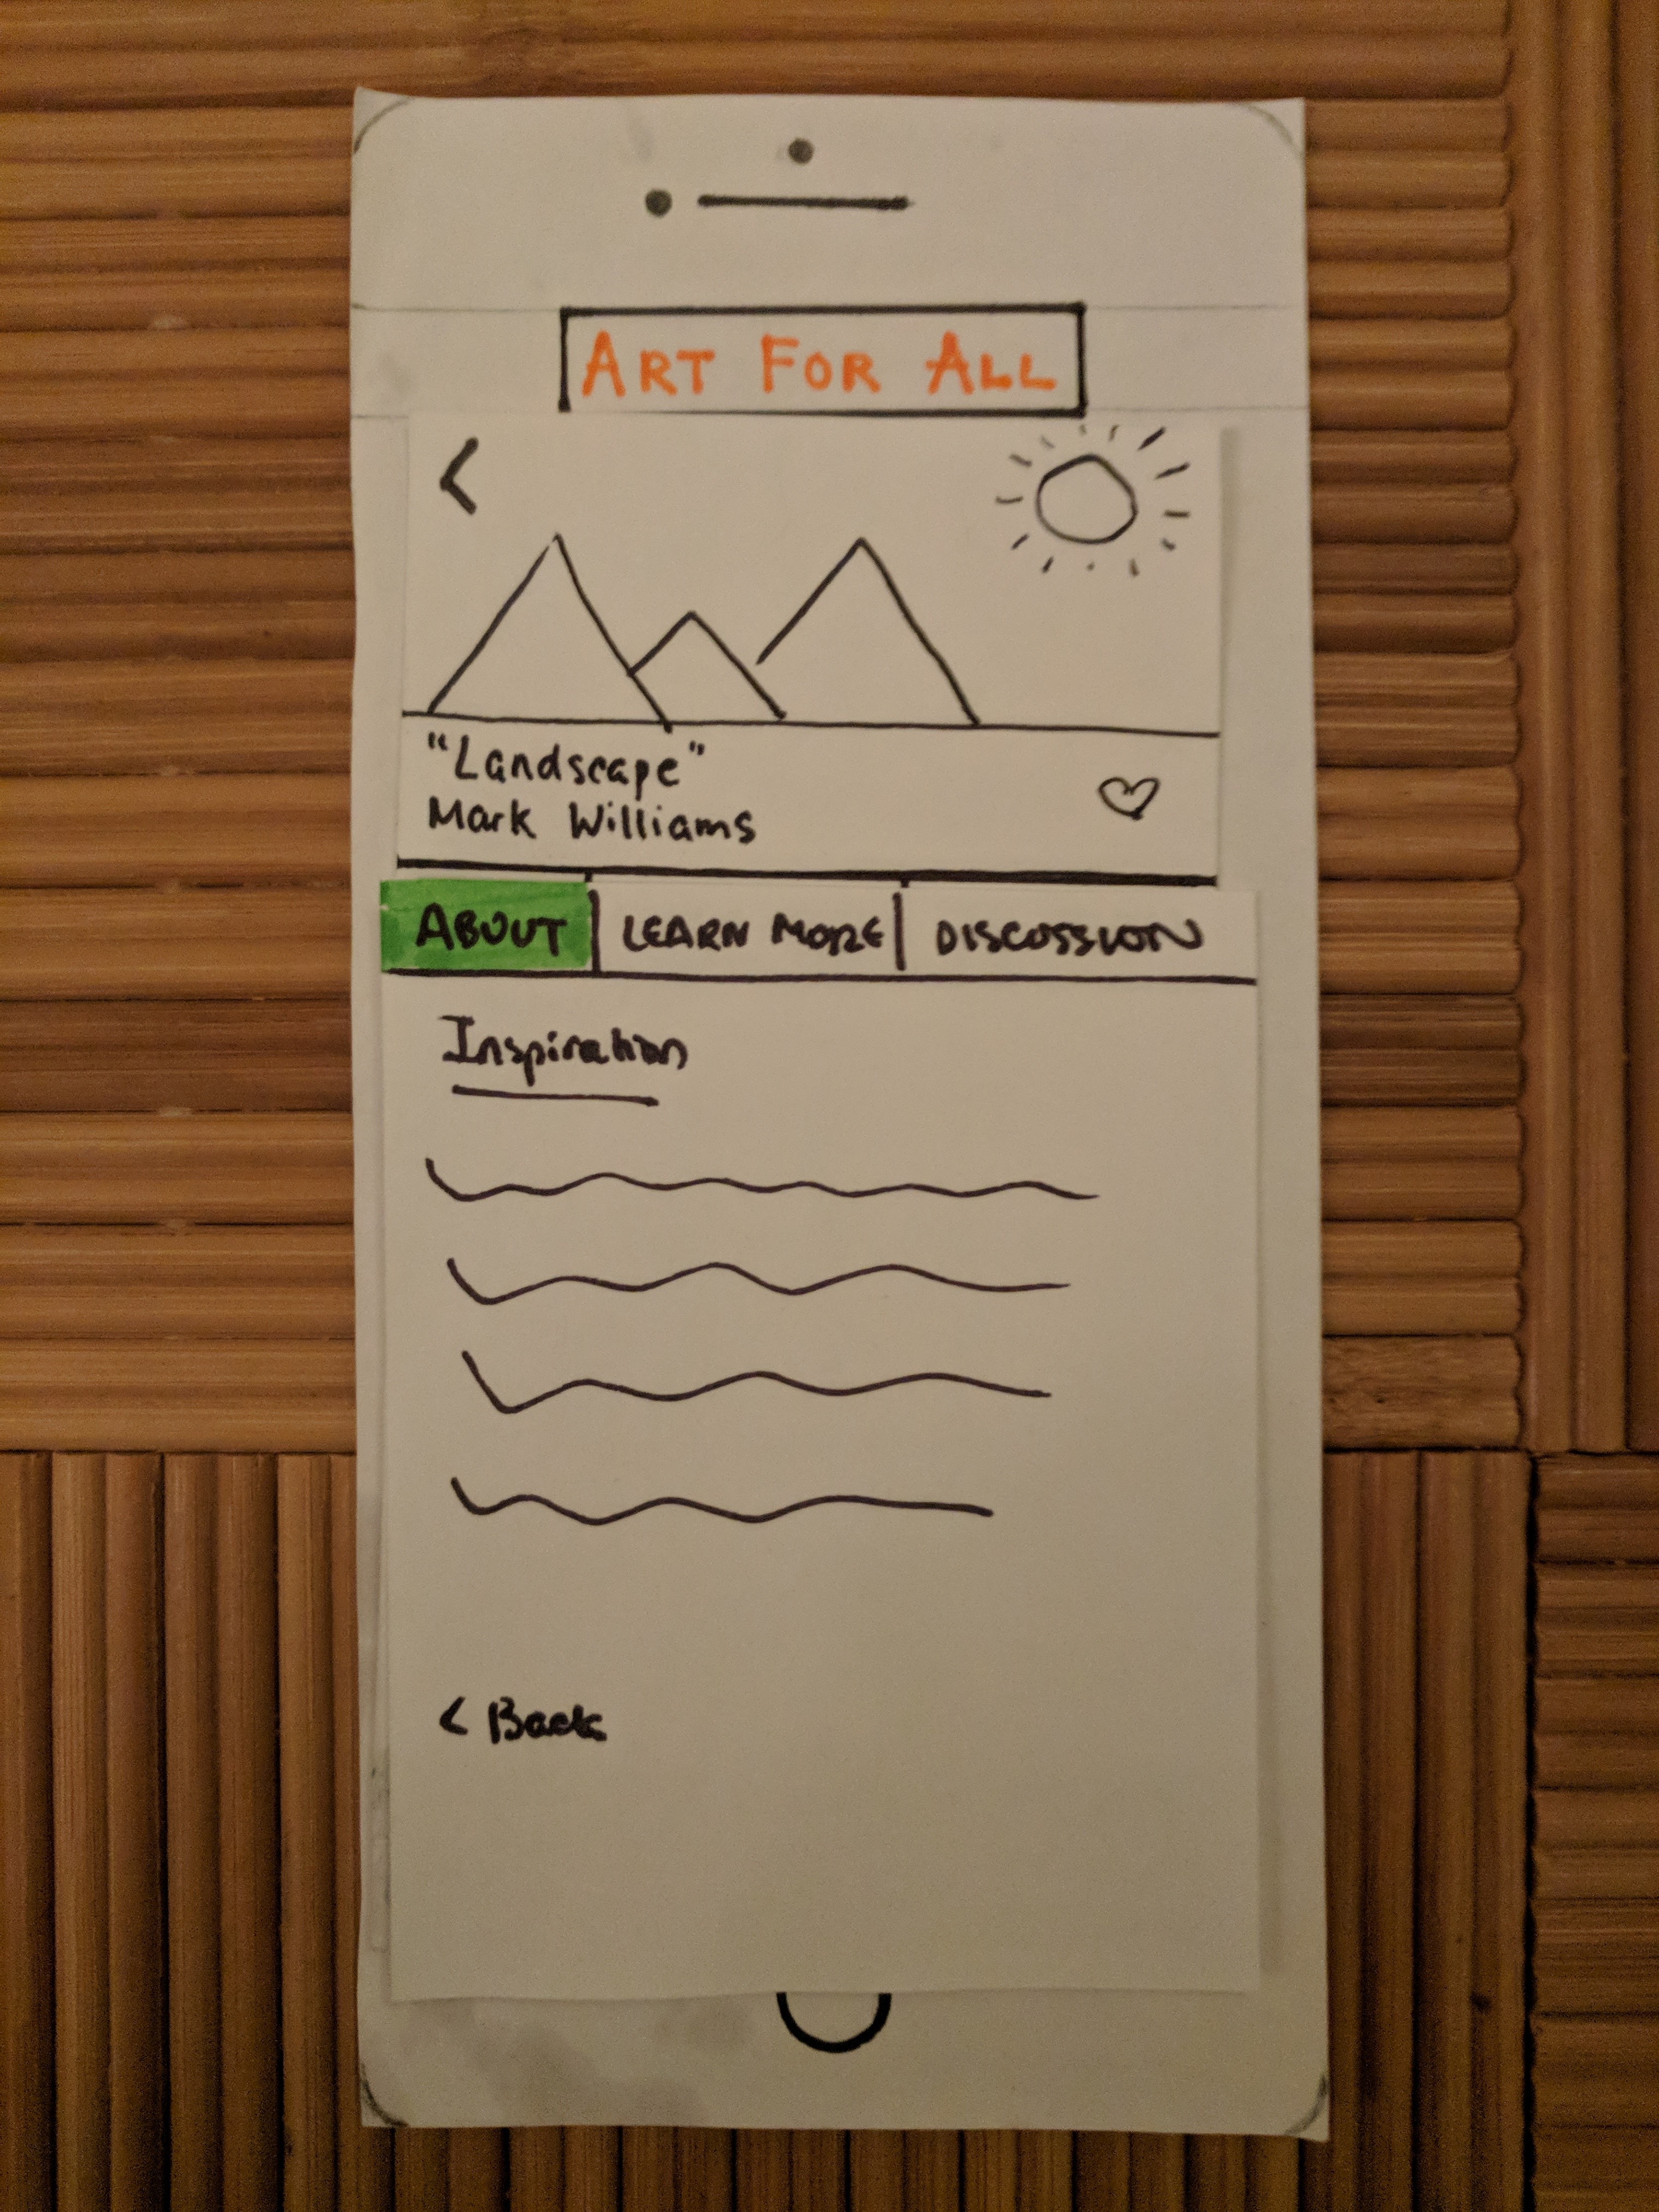 ART FOR ALL
<
"Landscape"
Mark Williams
ABOUT LEARN MORE DISCUSSION
Inspiration
< Back